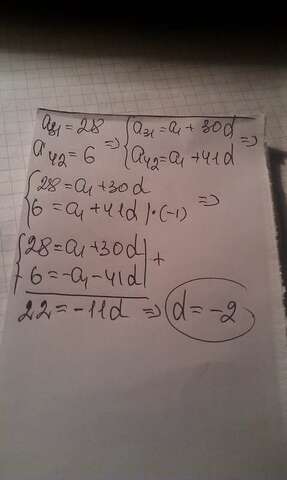 a₃₁ = 28 ⇒ { a₃₁ = a₁ + 30d ⇒
a₄₂ = 6 { a₄₂ = a₁ + 41d
{ 28 = a₁ + 30d ⇒
6 = a₁ + 41d | · (-1)
{ 28 = a₁ + 30d | +
-6 = -a₁ - 41d
22 = -11d ⇒ d = -2